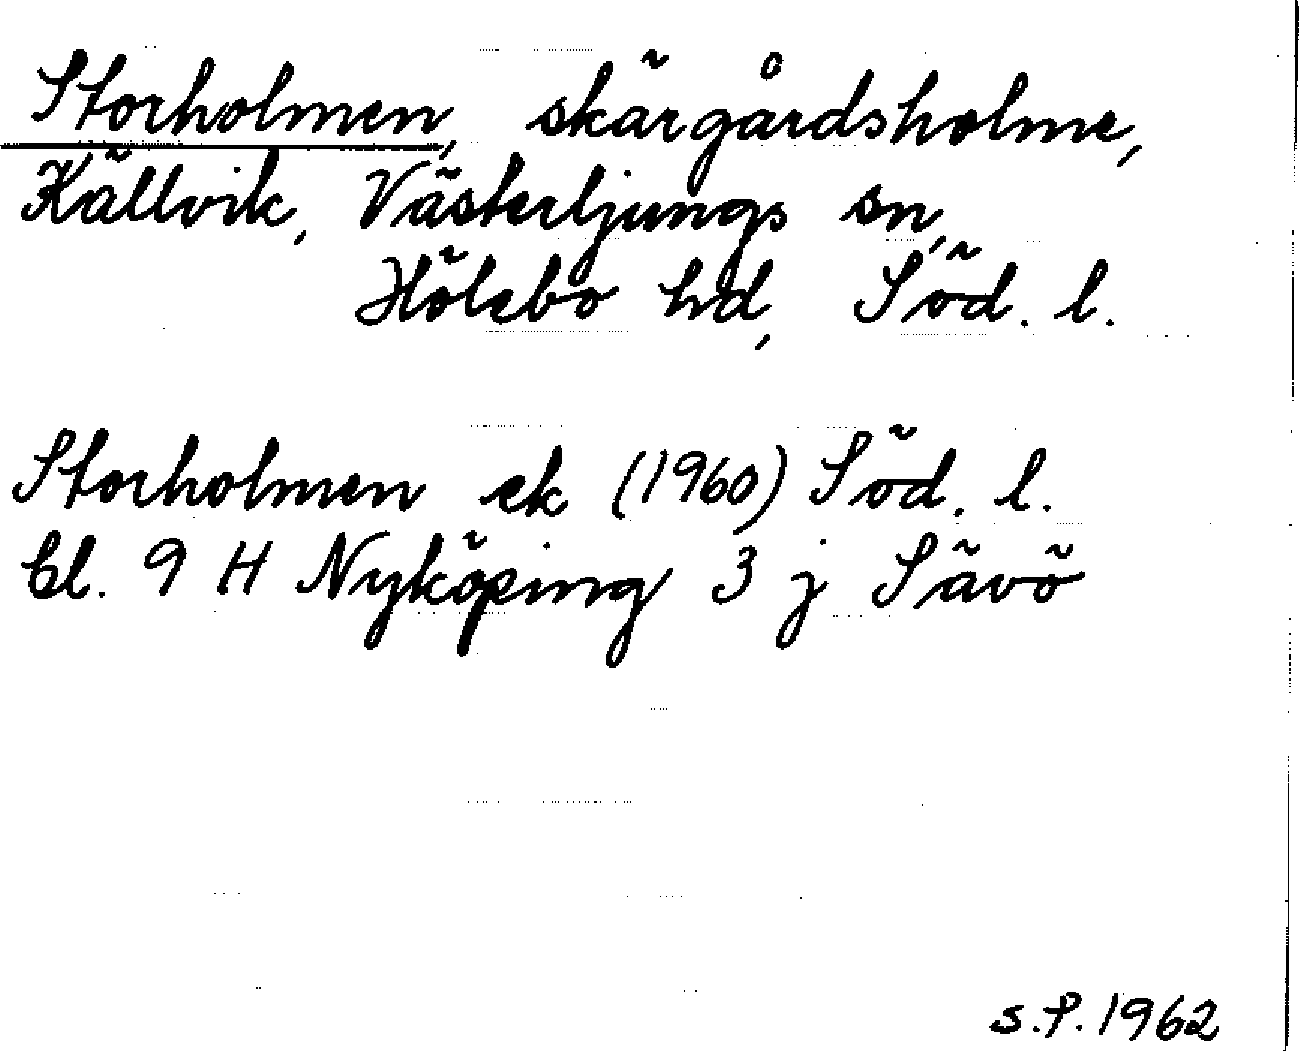 Storholmen, skärgårdsholme,
Källvik, Västerljungs sn,
Hölebo hd, Söd. l.
Storholmen ek (1960) Söd. l.
bl. 9 H Nyköping 3 j Sävö
S.P. 1962